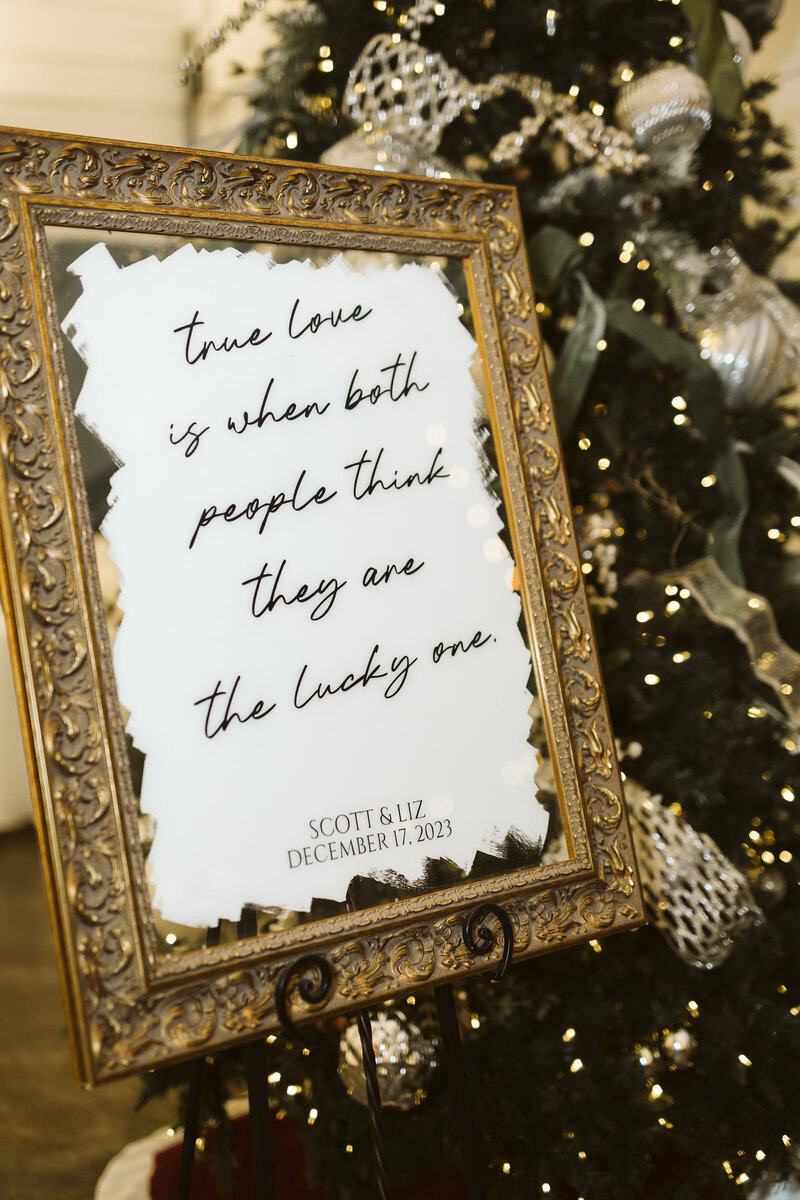 true love
is when both
people think
they are
the lucky one.
SCOTT & LIZ
DECEMBER 17, 2023